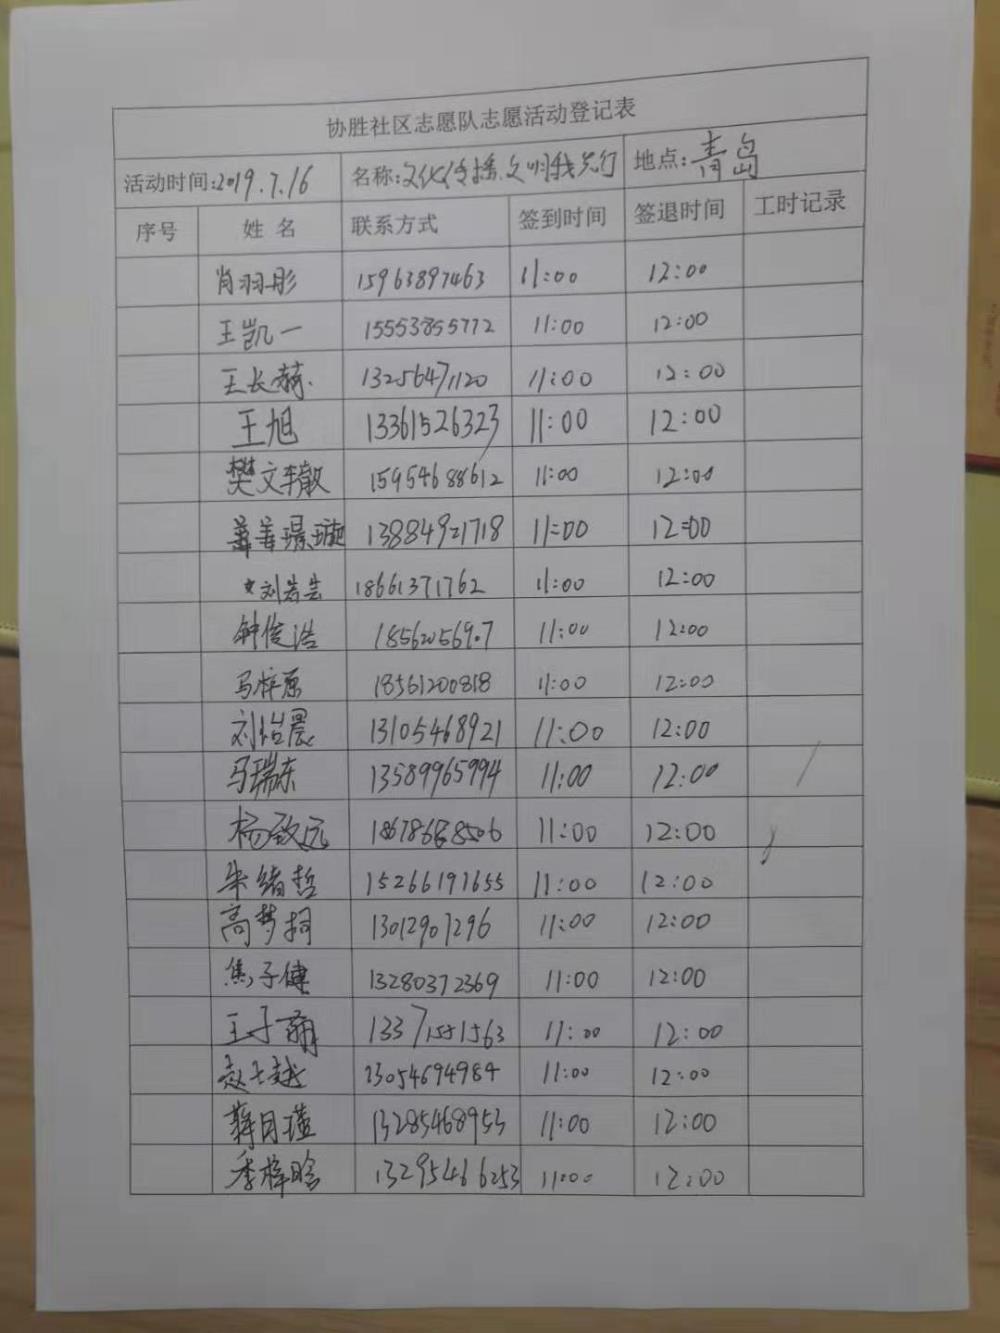 协胜社区志愿队志愿活动登记表
活动时间:2019.7.16 名称:文化传播.文明我先行 地点:青岛
序号 姓名 联系方式 签到时间 签退时间 工时记录
肖羽彤 15963897463 11:00 12:00
王凯一 15553855772 11:00 12:00
王长赫 13256471120 11:00 12:00
王旭 13361526323 11:00 12:00
樊文辙 15954688612 11:00 12:00
姜璟璇 13884921718 11:00 12:00
刘芸 18661371762 11:00 12:00
钟俊浩 18562056907 11:00 12:00
马梓原 18561200818 11:00 12:00
刘怡晨 13105468921 11:00 12:00
马瑞东 13589965994 11:00 12:00
杨致远 11:00 12:00
朱绪哲 15266191655 11:00 12:00
高梦 13012907296 11:00 12:00
焦子健 13280372369 11:00 12:00
王子 13371551563 11:00 12:00
赵越 13054694984 11:00 12:00
蒋月瑾 13285468953 11:00 12:00
季梓晗 13295466253 11:00 12:00